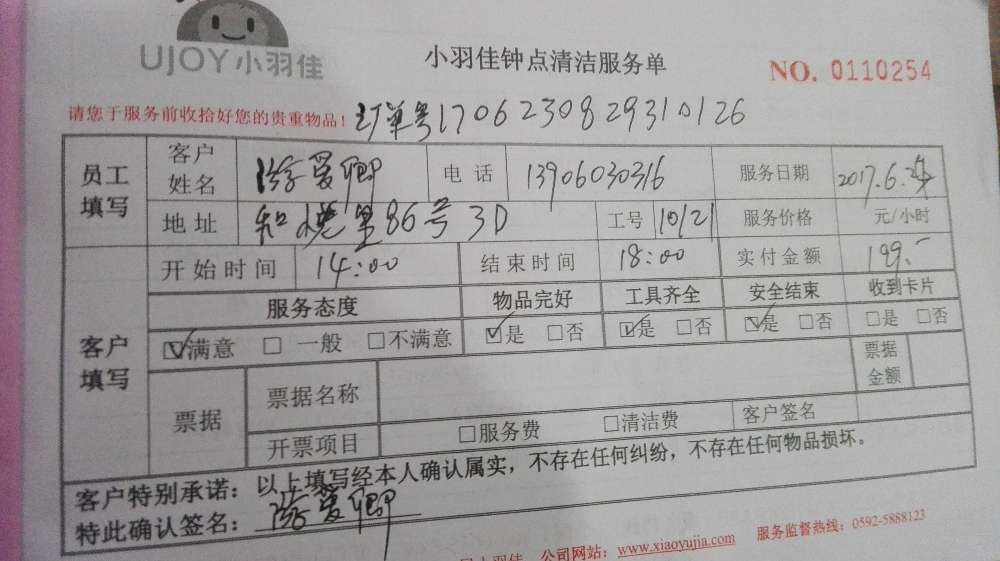 UJOY小羽佳
小羽佳钟点清洁服务单
NO. 0110254
请您于服务前收拾好您的贵重物品! 订单号1706230829310126
员工填写 客户姓名 游爱卿 电话 13906030316 服务日期 2017.6.24
地址 86号3D 工号 10121 服务价格 元/小时
客户填写 开始时间 14:00 结束时间 18:00 实付金额 199.-
服务态度 物品完好 工具齐全 安全结束 收到卡片
☑满意 □一般 □不满意 ☑是 □否 ☑是 □否 ☑是 □否 □是 □否
票据 票据名称 票据金额
开票项目 □服务费 □清洁费 客户签名
客户特别承诺：以上填写经本人确认属实，不存在任何纠纷，不存在任何物品损坏。
特此确认签名：游爱卿
小羽佳 公司网站：www.xiaoyujia.com 服务监督热线：0592-5888123